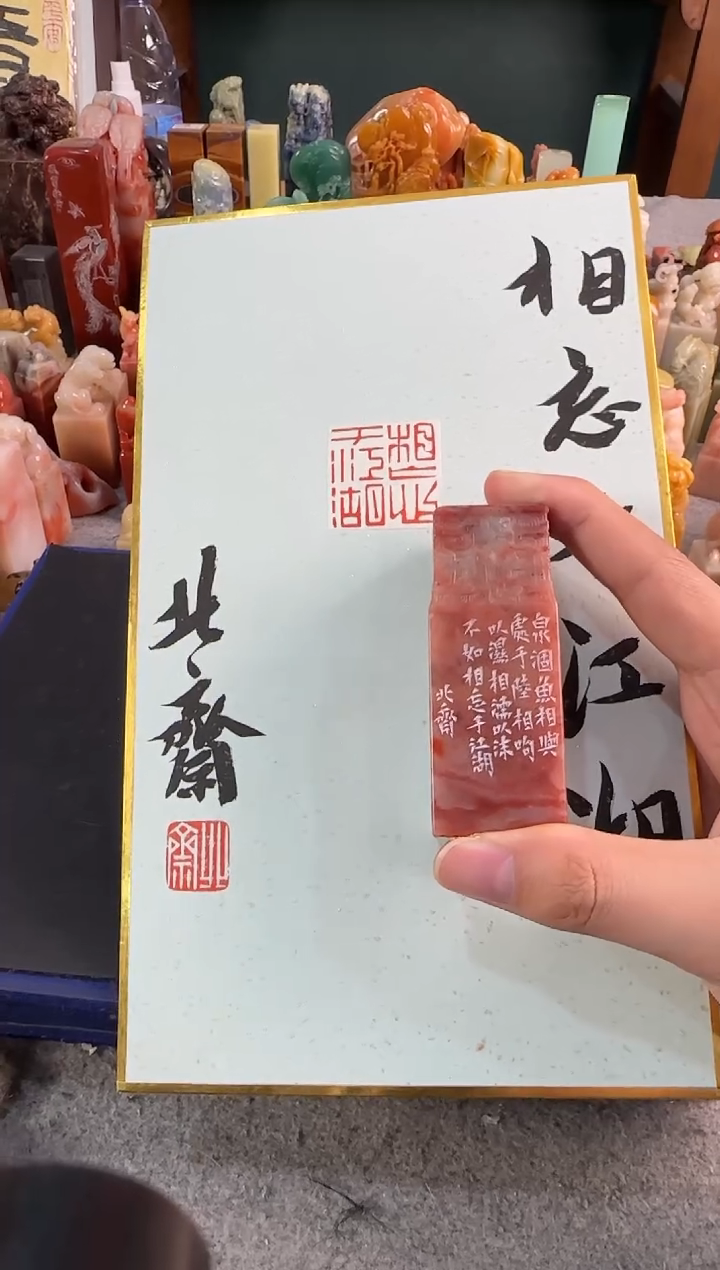 相忘江湖
相忘
于江湖
北齋
北齋
泉涸魚相與
處于陸相呴
以濕相濡以沫
不如相忘于江湖
北齋